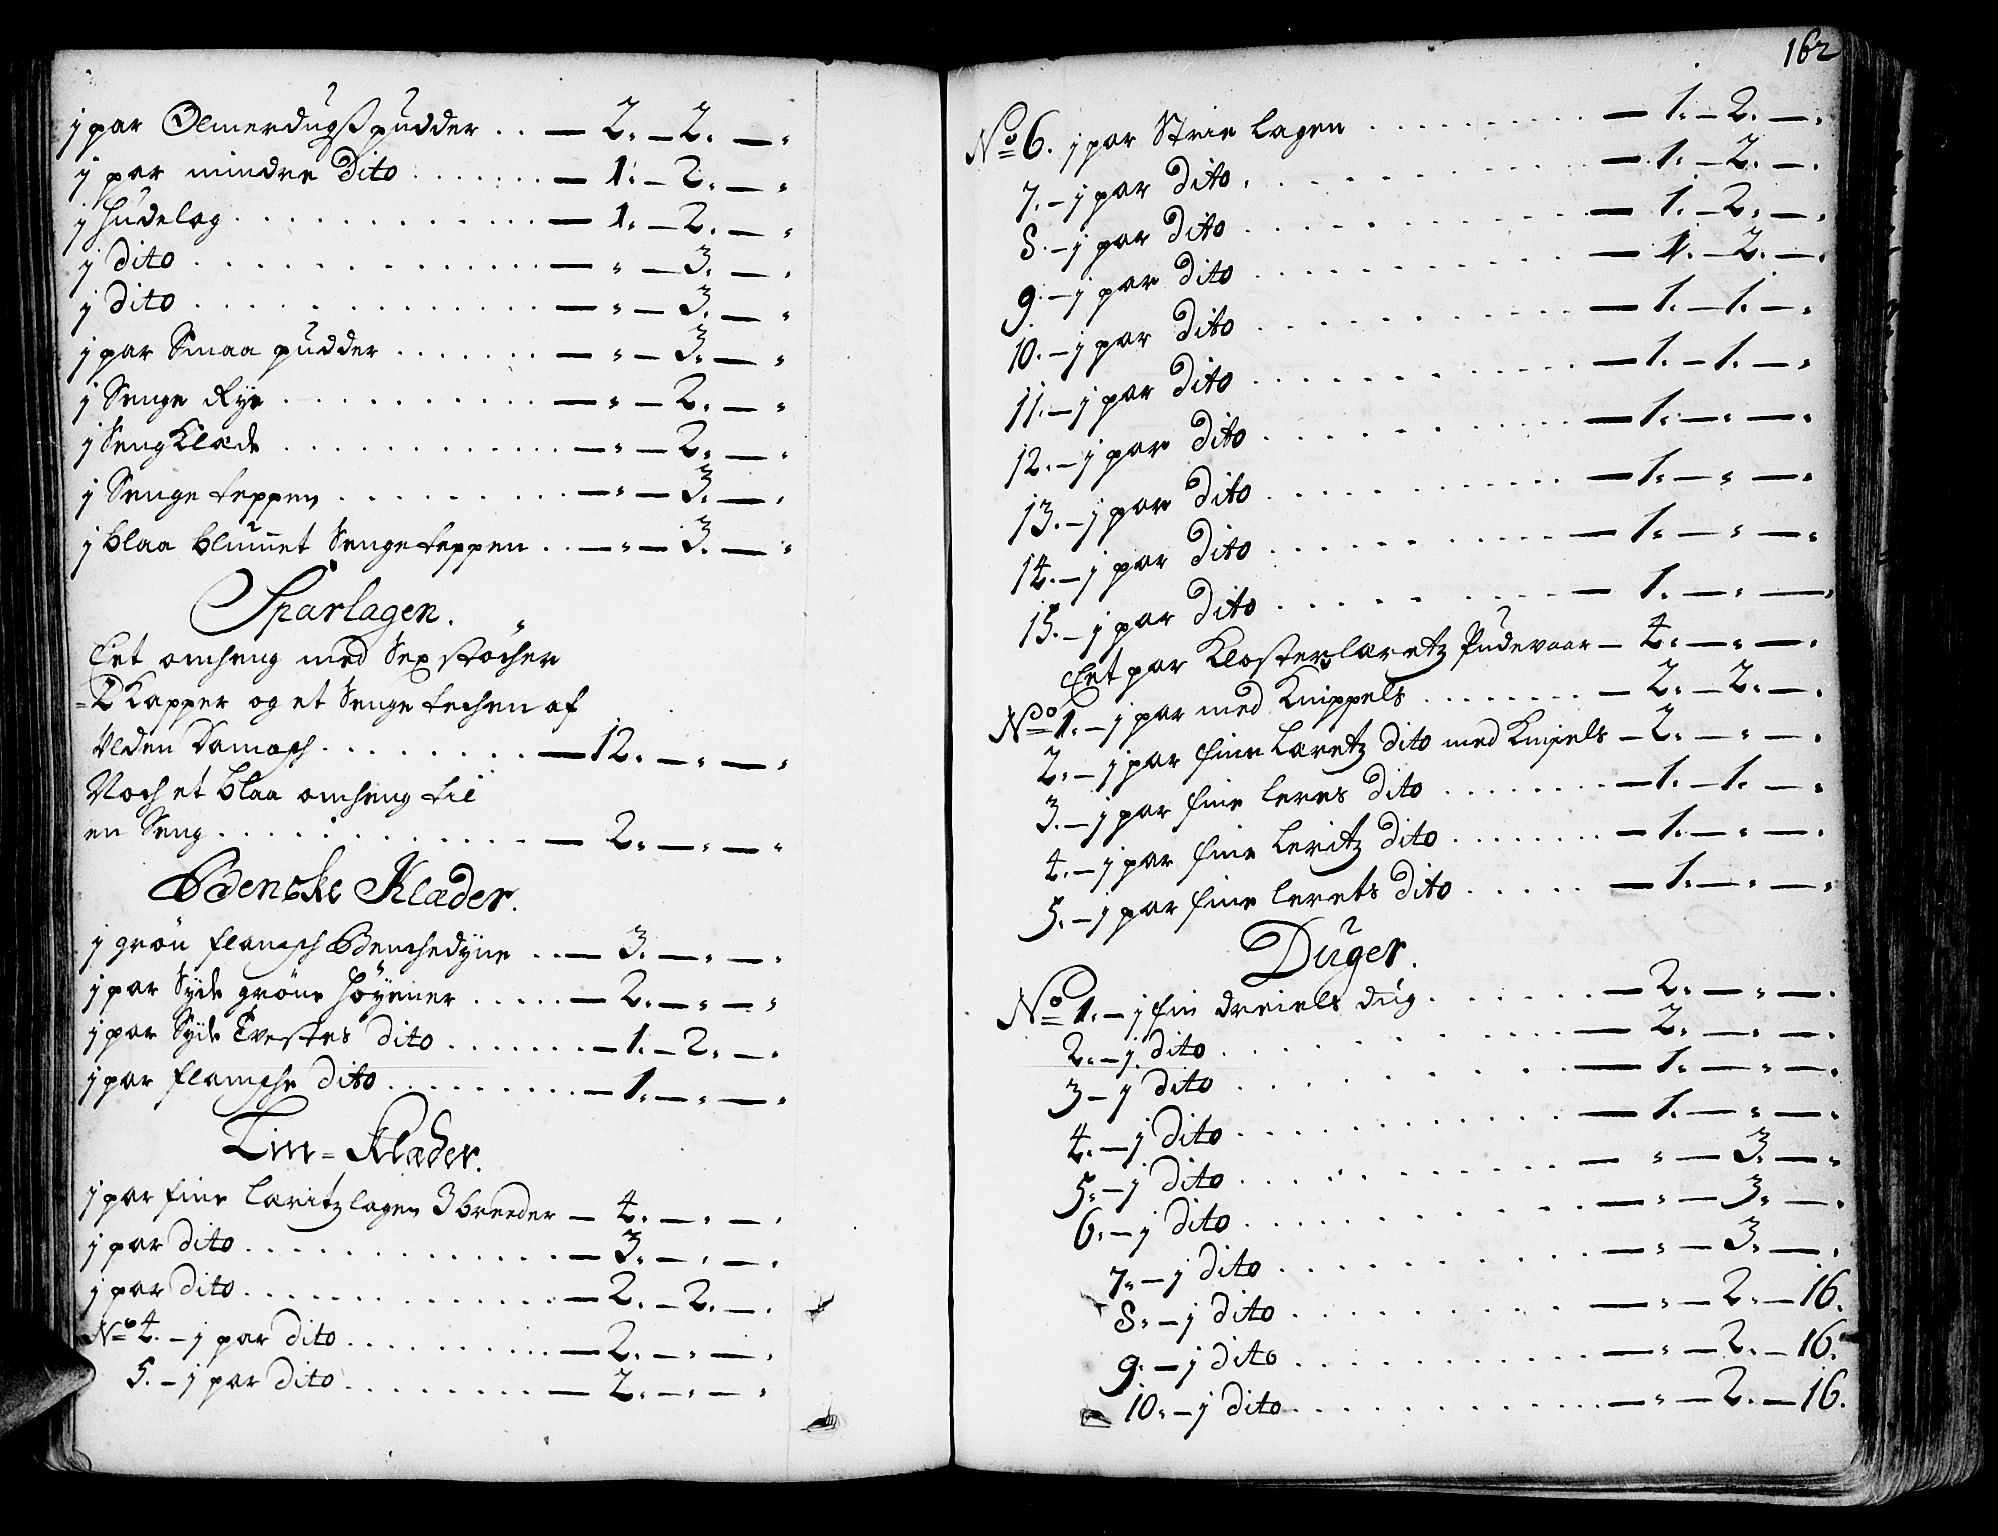 j par Olmerdugs pudder . . — 2. — 2. — "
j par mindre Dito . . . . . . . — 1. — 2. — "
j hudelag . . . . . . . . . . . . — 1. — 2. — "
j Dito . . . . . . . . . . . . . — " — 3. — "
j Dito . . . . . . . . . . . . . — " — 3. — "
j par Smaa pudder . . . . . . . — " — 3. — "
j Senge Rye . . . . . . . . . . — " — 2. — "
j Seng Klæde . . . . . . . . . . — " — 2. — "
j Senge teppen . . . . . . . . . — " — 3. — "
j blaa blumet Sengeteppen . . — " — 3. — "
Sparlagen.
Eet omheng med Sex støcher
2 Kapper og et Senge techen af
Ulden Damasch . . . . . . . . — 12. — " — "
Noch et blaa omheng til
en Seng . . . . . . . . . . . . — 2. — " — "
Bencke Klæder.
j grøn flamsch Benchedyne . . — 3. — " — "
j par Syde grøne Høyener . . . . . — 2. — " — "
j par Syde Tvestes dito . . . . . . . — 1. — 2. — "
j par flamsche dito . . . . . . . . . — 1. — " — "
Lin=Klæder.
j par fine laritz lagen 3 breeder — 4. — " — "
j par dito . . . . . . . . . . . . . — 3. — " — "
j par dito . . . . . . . . . . . . . — 2. — 2. — "
No 4. — j par dito . . . . . . . . . — 2. — " — "
5. — j par dito . . . . . . . . . — 2. — " — "
162
No 6. j par Strie lagen . . . . . . . . — 1. — 2. — "
7. — j par Dito . . . . . . . . . . — 1. — 2. — "
8. — j par Dito . . . . . . . . . . — 1. — 2. — "
9. — j par Dito . . . . . . . . . . — 1. — 2. — "
10. — j par Dito . . . . . . . . . . — 1. — 1. — "
11. — j par Dito . . . . . . . . . . — 1. — 1. — "
12. — j par Dito . . . . . . . . . . — 1. — " — "
13. — j par Dito . . . . . . . . . . — 1. — " — "
14. — j par Dito . . . . . . . . . . — 1. — " — "
15. — j par Dito . . . . . . . . . . — 1. — " — "
Eet par Klosterlæretz Pudevaar — 4. — " — "
No 1. — j par med Knippels . . . . . . . . — 2. — 2. — "
2. — j par fine Læretz dito med Knipels — 2. — " — "
3. — j par fine leres Dito . . . . . . . — 1. — 1. — "
4. — j par fine Leritz Dito . . . . . . . — 1. — " — "
5. — j par fine lerets Dito . . . . . . — 1. — " — "
Duger.
No 1. — j fin dreiels dug . . . . . . — 2. — " — "
2. — j dito . . . . . . . . . . . . — 2. — " — "
3 — j dito . . . . . . . . . . . . — 1. — " — "
4. — j dito . . . . . . . . . . . . — 1. — " — "
5. — j dito . . . . . . . . . . . . — " — 3. — "
6. — j dito . . . . . . . . . . . . — " — 3. — "
7. — j dito . . . . . . . . . . . . — " — 3. — "
8. — j dito . . . . . . . . . . . . — " — 2. — 16.
9. — j dito . . . . . . . . . . . . — " — 2. — 16.
10. — j dito . . . . . . . . . . . . — " — 2. — 16.